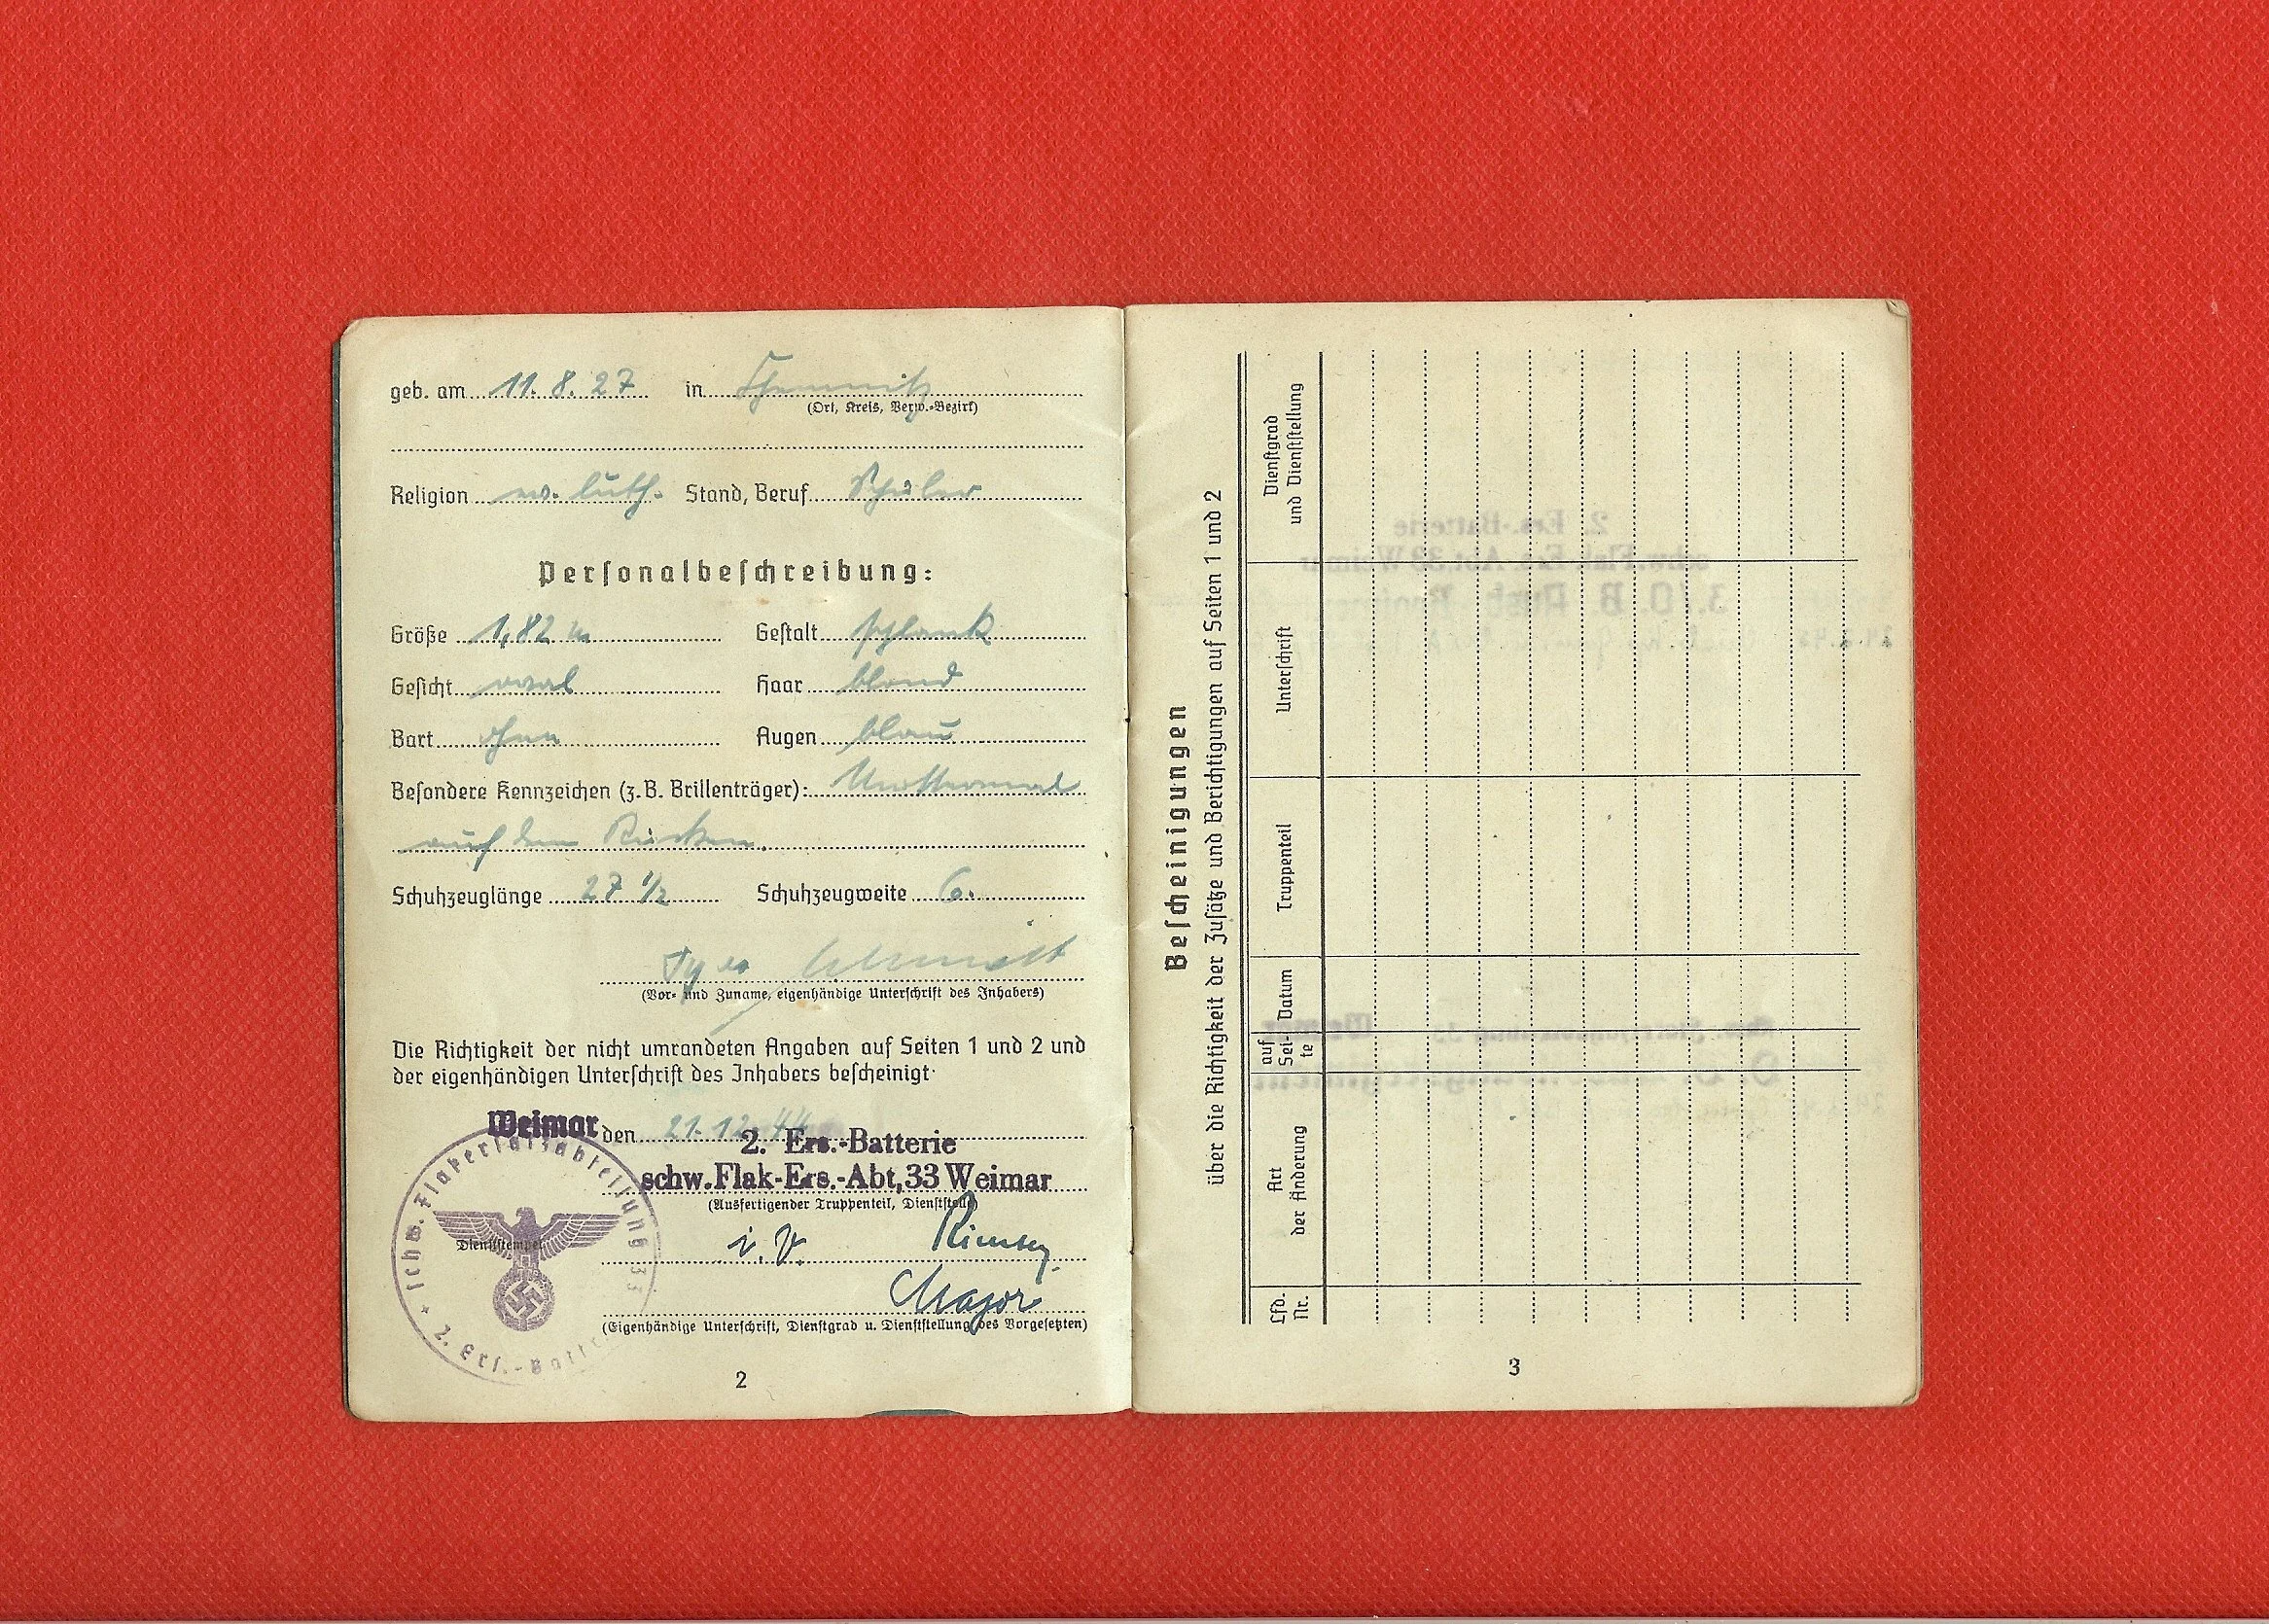 geb. am 11. 8. 27 in Chemnitz
(Ort, Kreis, Verw.-Bezirk)
Religion ev. luth. Stand, Beruf Schüler
Personalbeschreibung:
Größe 1,82 m Gestalt schlank
Gesicht oval Haar blond
Bart ohne Augen blau
Besondere Kennzeichen (z. B. Brillenträger): Muttermal
auf dem Rücken.
Schuhzeuglänge 27 1/2 Schuhzeugweite 6.
Schmidt
(Vor- und Zuname, eigenhändige Unterschrift des Inhabers)
Die Richtigkeit der nicht umrandeten Angaben auf Seiten 1 und 2 und
der eigenhändigen Unterschrift des Inhabers bescheinigt
Weimar den 21. 12. 44
2. Ers.-Batterie
schw. Flak-Ers.-Abt, 33 Weimar
(Ausfertigender Truppenteil, Dienststelle)
i. V.
Major
(Eigenhändige Unterschrift, Dienstgrad u. Dienststellung des Vorgesetzten)
Dienststempel
schw. Flakersatzabteilung 33
2. Ers.-Batterie
2
Bescheinigungen
über die Richtigkeit der Zusätze und Berichtigungen auf Seiten 1 und 2
Lfd. Nr.
Art der Änderung
auf Seite
Datum
Truppenteil
Unterschrift
Dienstgrad und Dienststellung
3